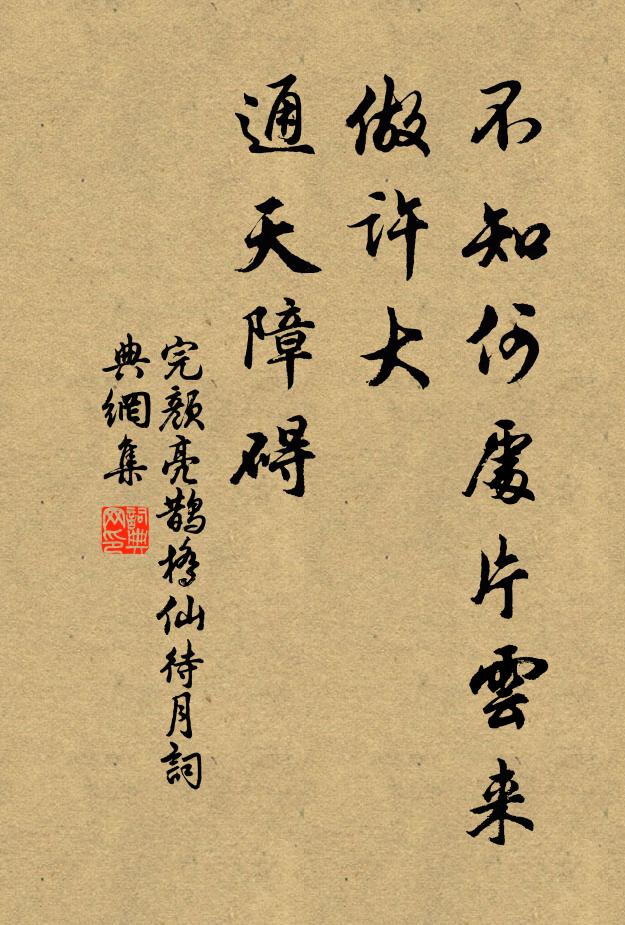 不知何處片雲来
做許大
通天障碍
完顏亮鵲橋仙待月詞
典網集
詞典网印